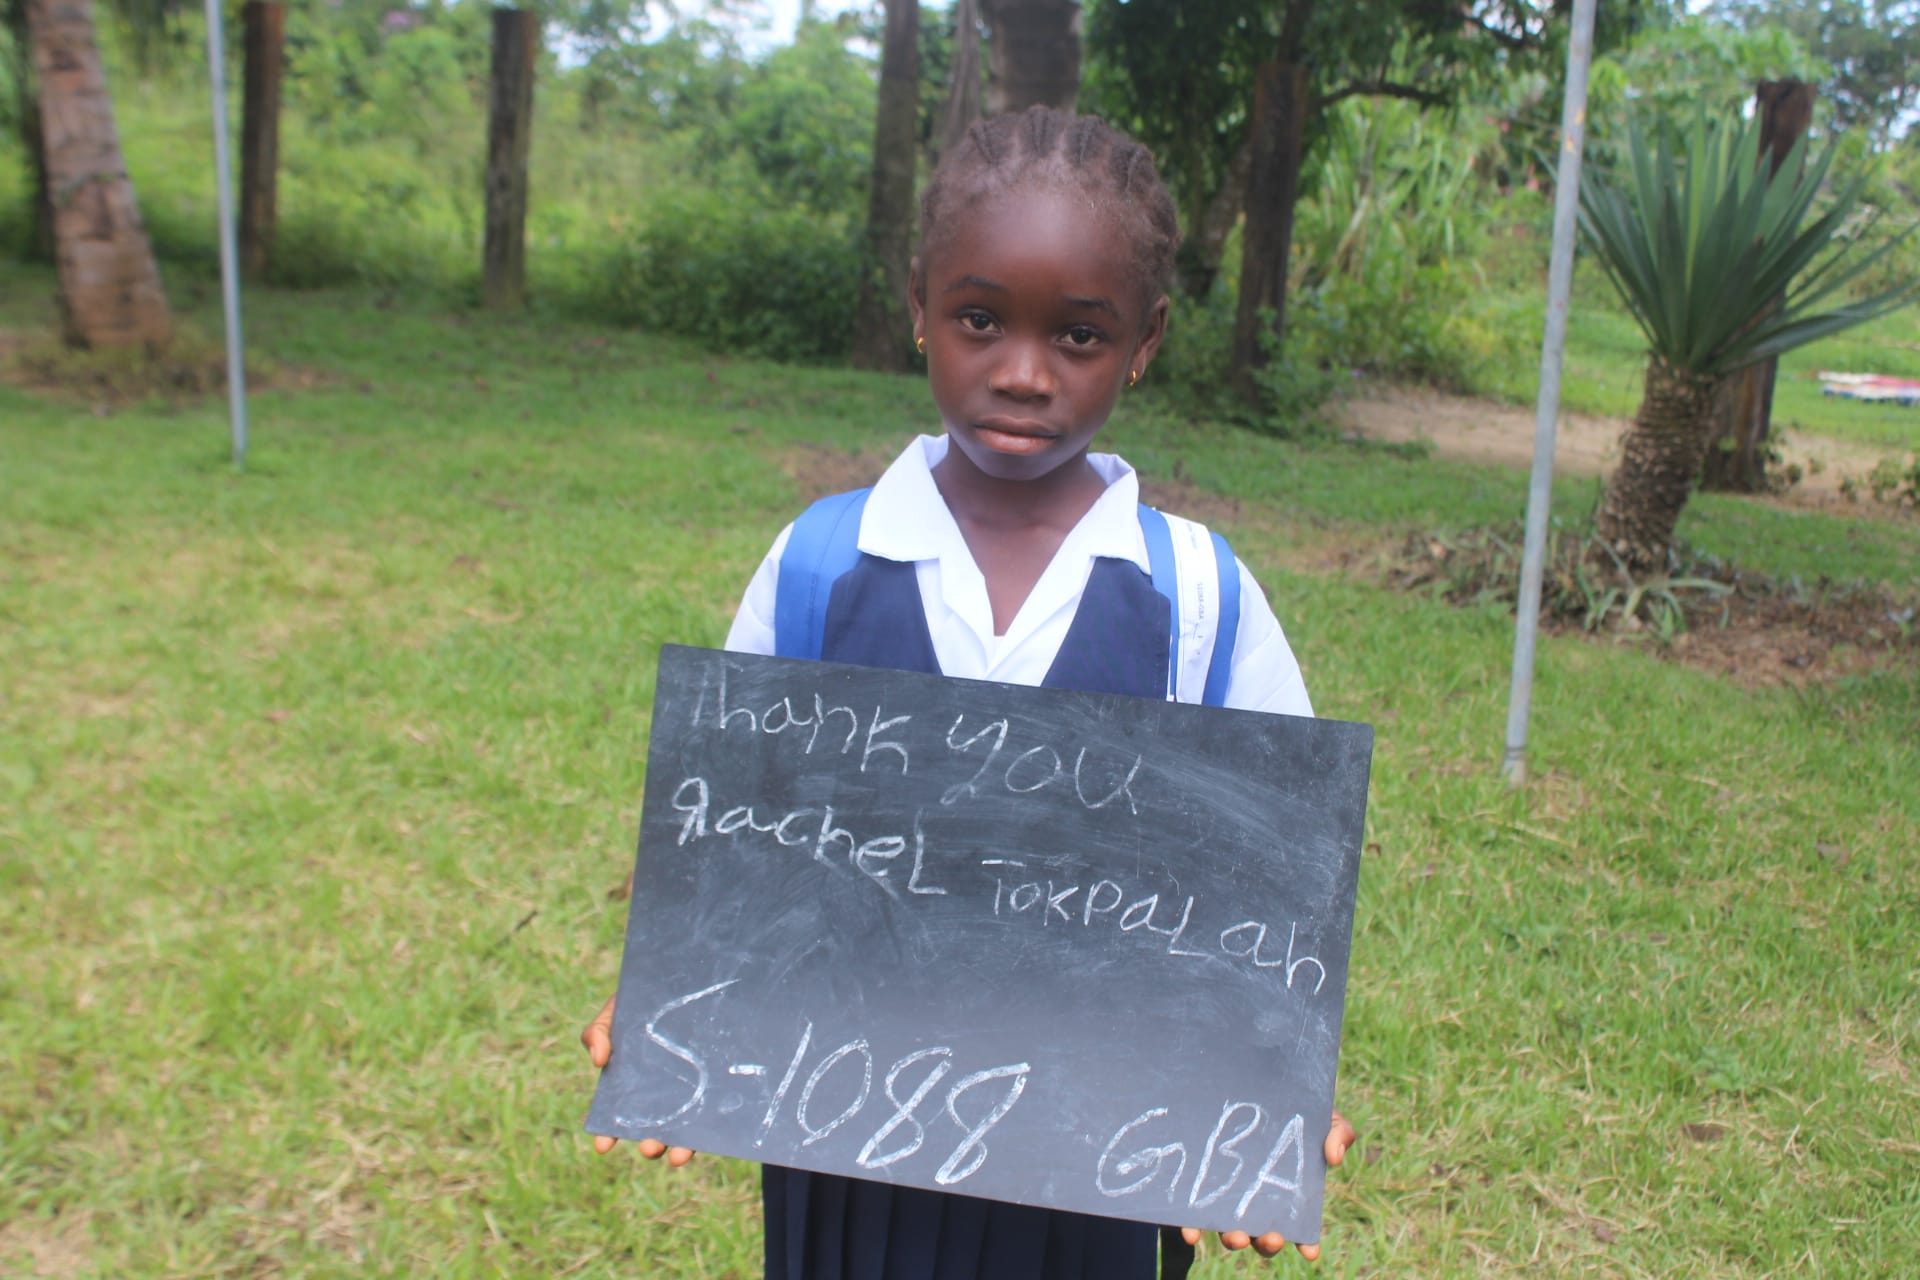 Thank you
Rachel Tokpalah
S-1088 GBA